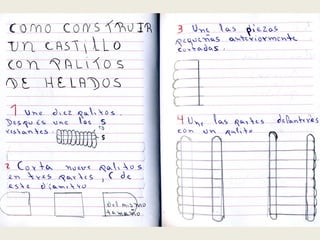 COMO CONSTRUIR
UN CASTILLO
CON PALITOS
DE HELADOS
1 Une diez palitos.
Después une los 5
restantes.
5
2 Corta nueve palitos
en tres partes, de
este diametro
del mismo
tamaño.
3 Une las piezas
pequeñas anteriormente
cortadas.
4 Une las partes delanteras
con un palito